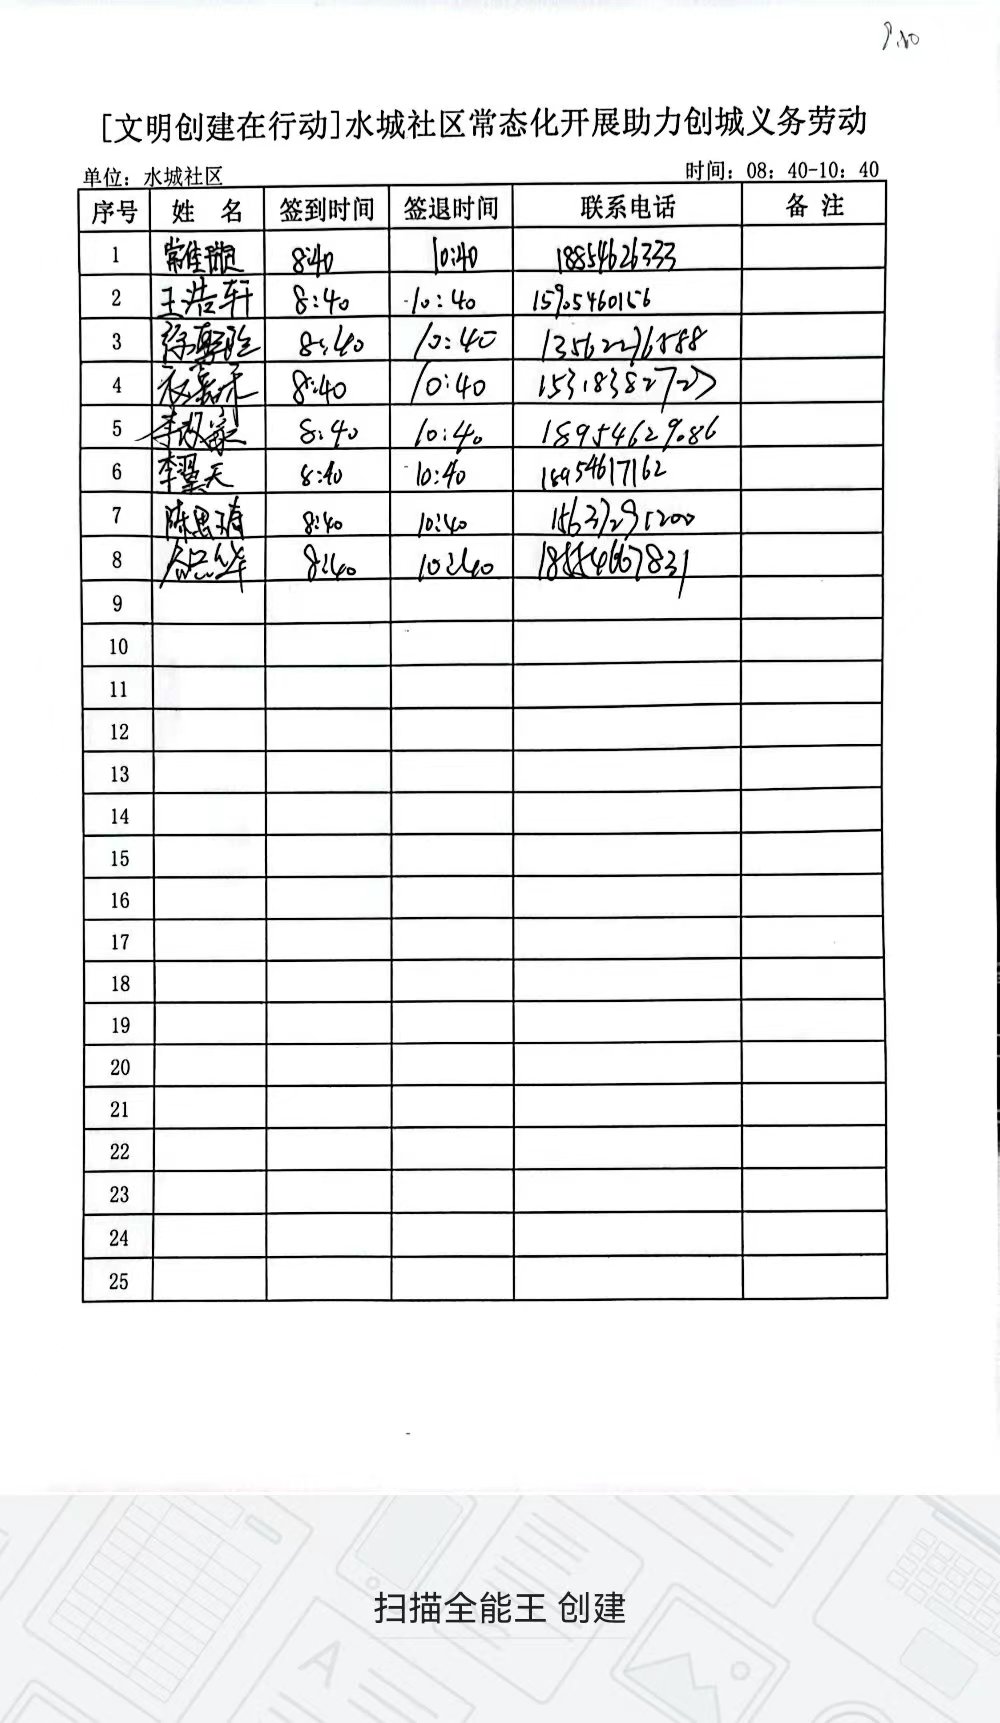 9.10
[文明创建在行动]水城社区常态化开展助力创城义务劳动
单位：水城社区 时间：08：40-10：40
序号 姓 名 签到时间 签退时间 联系电话 备 注
1 8:40 10:40 18854626333
2 王浩轩 8:40 10:40 15905460156
3 8:40 10:40 13562276588
4 8:40 10:40 15318382727
5 8:40 10:40 18954629086
6 李翼天 8:40 10:40 18954617162
7 8:40 10:40
8 8:40 10:40 18554667831
9
10
11
12
13
14
15
16
17
18
19
20
21
22
23
24
25
扫描全能王 创建